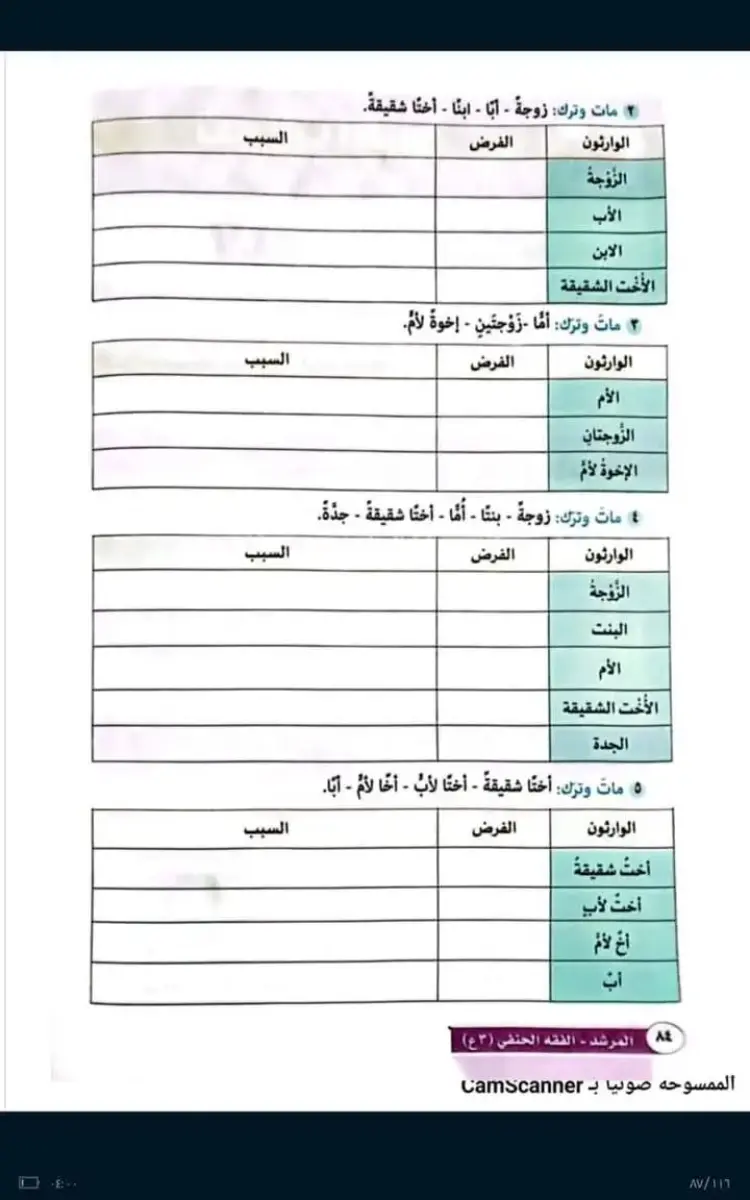 ٢ مات وترك: زوجةً - أبًا - ابنًا - أختًا شقيقةً.
الوارثون الفرض السبب
الزَّوْجةُ
الأب
الابن
الأُخْت الشقيقة
٣ ماتَ وترَك: أمًّا - زَوْجتَينِ - إخوةً لأمٍّ.
الوارثون الفرض السبب
الأم
الزَّوجتانِ
الإخوةُ لأمٍّ
٤ ماتَ وترَك: زوجةً - بنتًا - أُمًّا - أختًا شقيقةً - جدَّةً.
الوارثون الفرض السبب
الزَّوْجةُ
البنت
الأم
الأُخْت الشقيقة
الجدة
٥ ماتَ وترَك: أختًا شقيقةً - أختًا لأبٍ - أخًا لأمٍّ - أبًا.
الوارثون الفرض السبب
أختٌ شقيقةٌ
أختٌ لأبٍ
أخٌ لأمٍّ
أبٌ
٨٤ المرشد - الفقه الحنفي (٣ع)
الممسوحة ضوئيا بـ CamScanner
٠٤:٠٠ ٨٧/١١٦